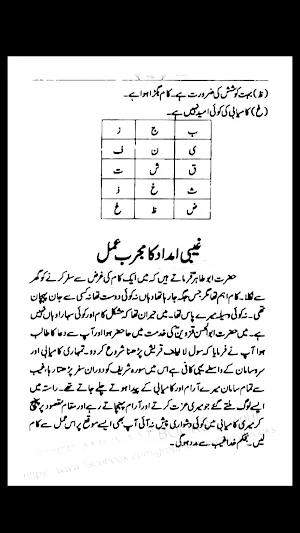 (ظ) بہت کوشش کی ضرورت ہے۔ کام بگڑا ہوا ہے۔
(غ) کامیابی کی کوئی امید نہیں ہے۔
ب ج ز
ی ن ف
ق ش ت
ث خ ذ
ض ظ غ
غیبی امداد کا مجرب عمل
حضرت ابو طاہر فرماتے ہیں کہ میں ایک کام کی غرض سے سفر کرنے کو گھر
سے نکلا۔ کام اہم تھا مگر جس جگہ جا رہا تھا وہاں نہ کوئی دوست تھا نہ کسی سے جان پہچان
تھی۔ نہ کوئی وسیلہ میرے پاس تھا۔ میں حیران تھا کہ مشکل کام اور کوئی سہارا وہاں نہیں
ہے۔ میں حضرت ابوالحسن قزوینی کی خدمت میں حاضر ہوا اور آپ سے دعا کا طالب
ہوا آپ نے فرمایا کہ سورۂ لایلاف قریش پڑھنا شروع کر دو۔ تمہاری کامیابی اور
سر و سامان کے واسطے یہی کافی ہے اس میں سورہ شریف کو دوران سفر پڑھتا رہا غیب
سے تمام سامان میرے آرام اور کامیابی کے پیدا ہوتے چلے جاتے تھے۔ راستہ میں
ایسے لوگ ملتے گئے جو میری عزت کرتے اور آرام پہنچاتے رہے اور مقام مقصود پر پہنچ
کر میری کامیابی میں کوئی دشواری پیش نہ آئی آپ بھی ایسے موقع پر اس عمل سے کام
لیں۔ بحکم خدا غیب سے مدد ہوگی۔